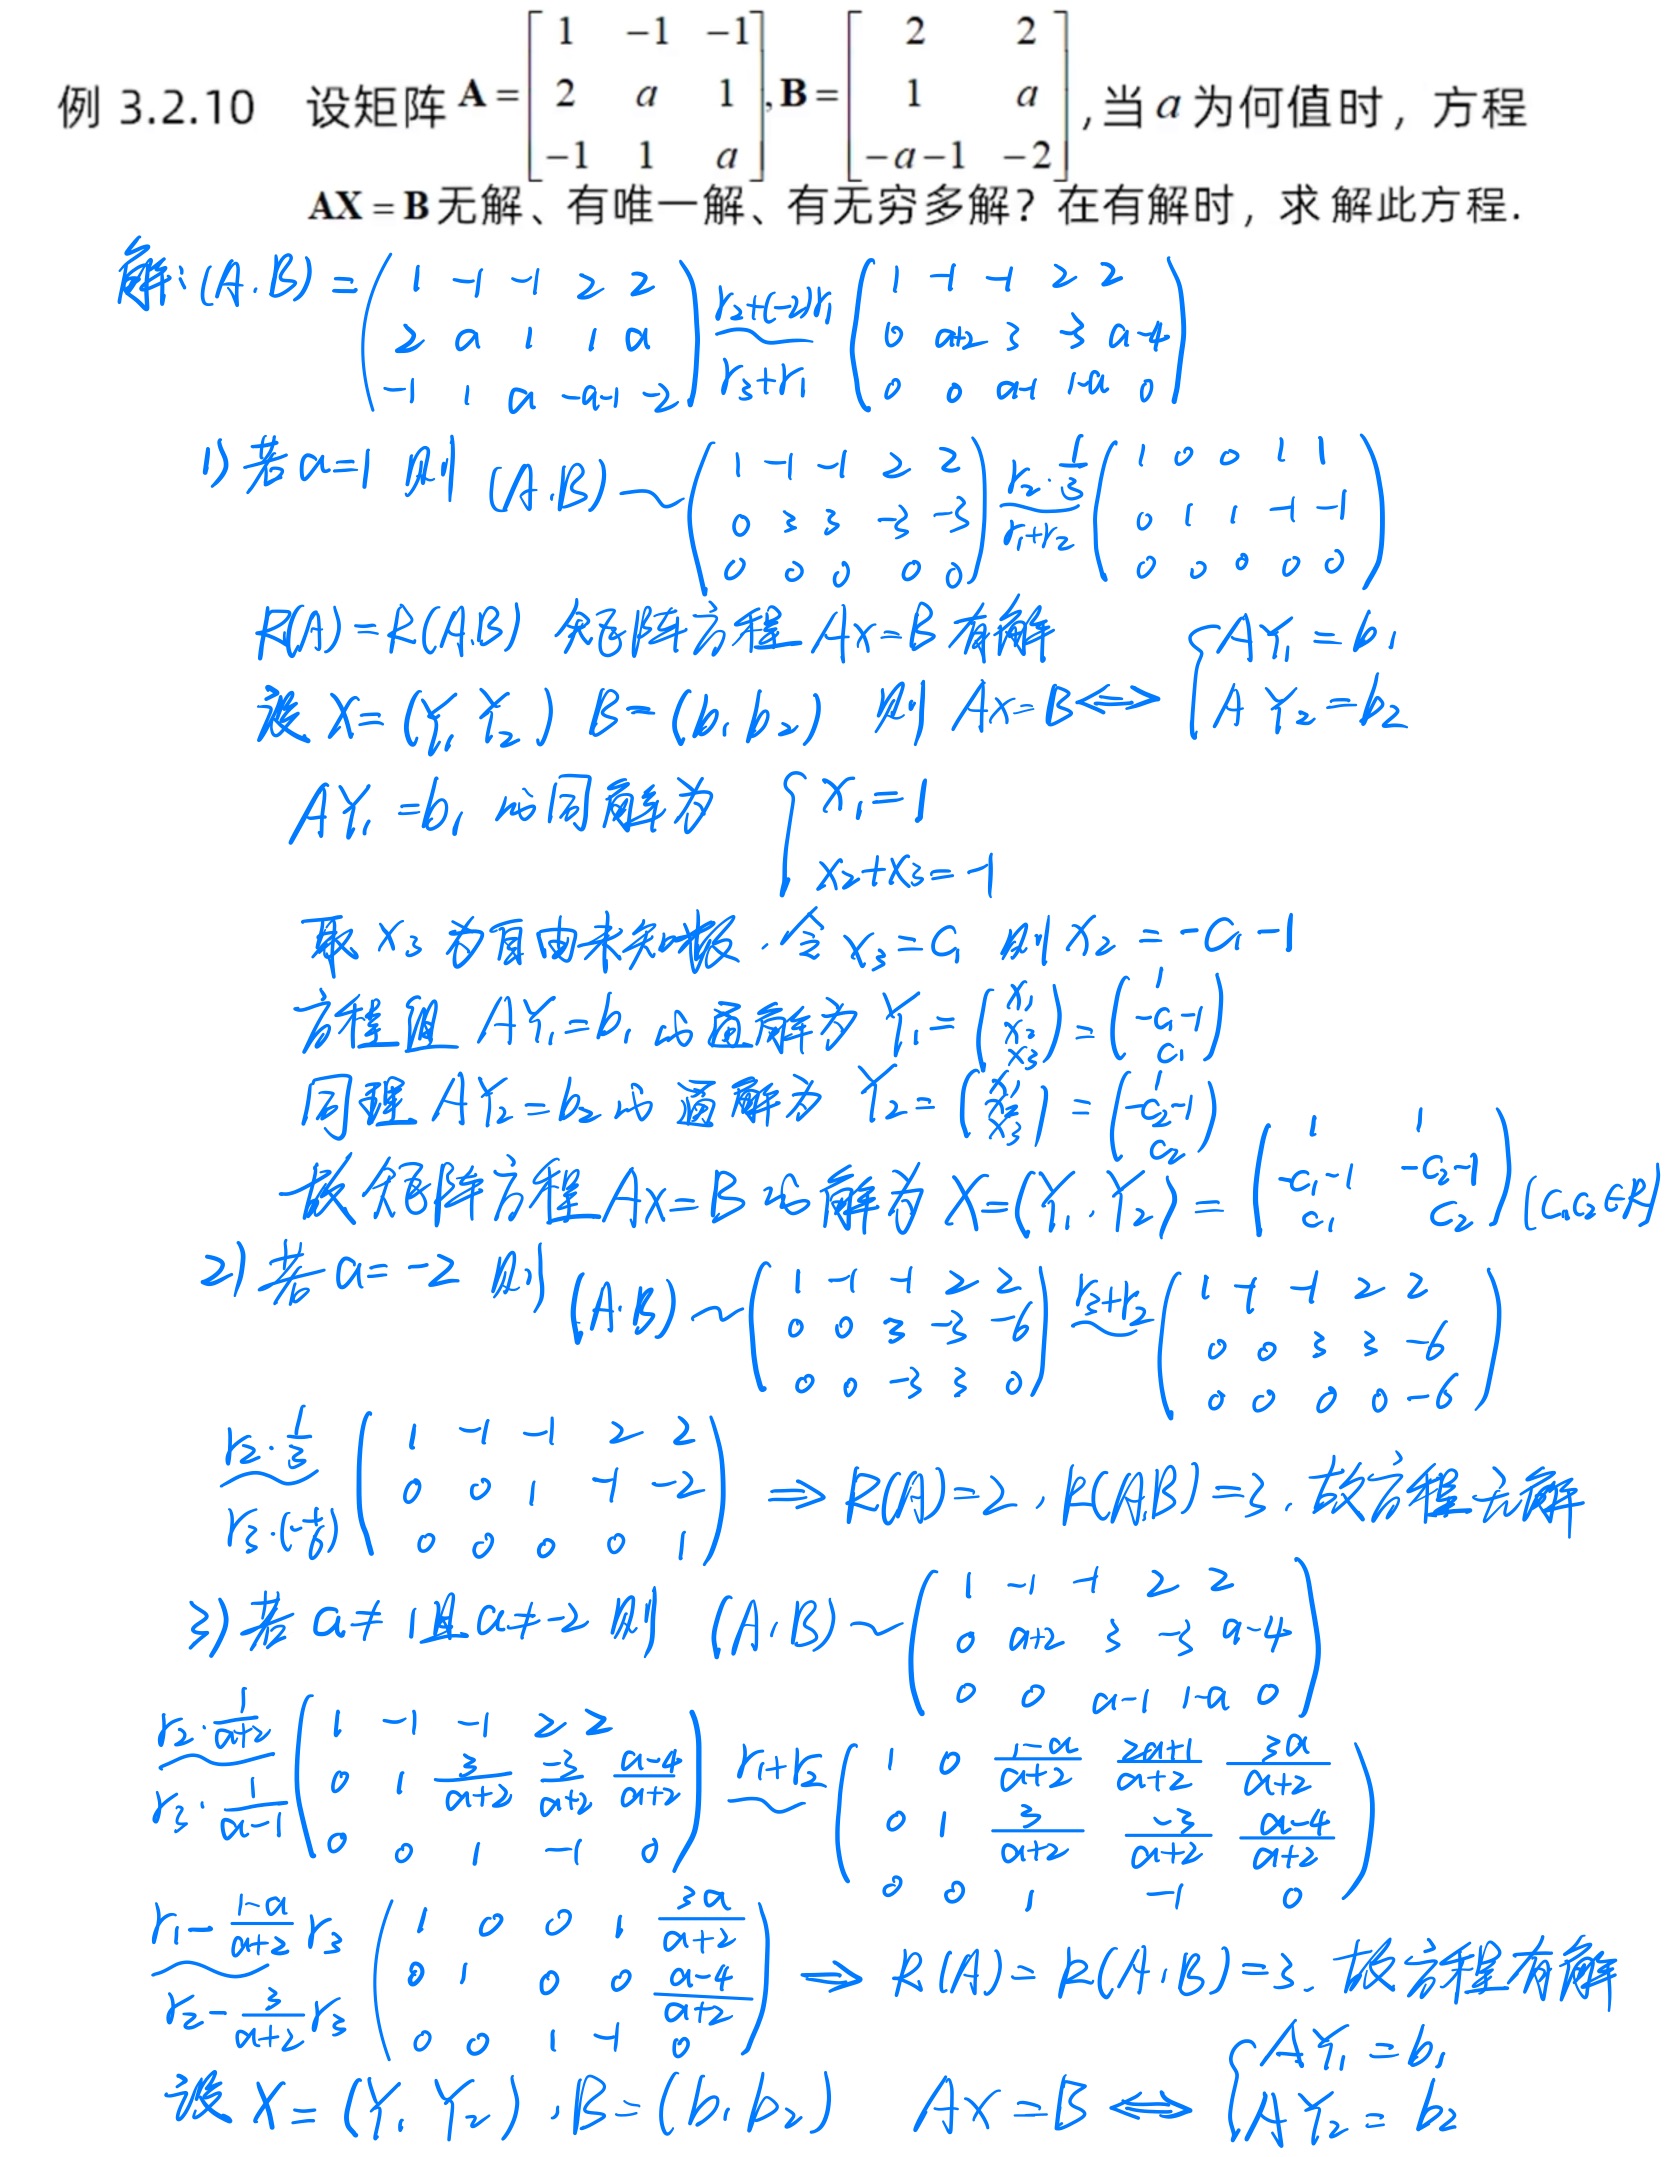 例 3.2.10 设矩阵 A = [1 −1 −1; 2 a 1; −1 1 a], B = [2 2; 1 a; −a−1 −2], 当 a 为何值时，方程
AX = B 无解、有唯一解、有无穷多解？在有解时，求解此方程.
解: (A.B) = (1 -1 -1 2 2; 2 a 1 1 a; -1 1 a -a-1 -2) r₂+(-2)r₁ ~ r₃+r₁ (1 -1 -1 2 2; 0 a+2 3 -3 a-4; 0 0 a-1 1-a 0)
1) 若 a=1 则 (A.B) ~ (1 -1 -1 2 2; 0 3 3 -3 -3; 0 0 0 0 0) r₂·1/3 ~ r₁+r₂ (1 0 0 1 1; 0 1 1 -1 -1; 0 0 0 0 0)
R(A)=R(A.B) 矩阵方程 AX=B 有解
设 X=(Y₁ Y₂) B=(b₁ b₂) 则 AX=B ⟺ { AY₁=b₁; AY₂=b₂
AY₁=b₁ 的同解为 { x₁=1; x₂+x₃=-1
取 x₃ 为自由未知数. 令 x₃=c₁ 则 x₂=-c₁-1
方程组 AY₁=b₁ 的通解为 Y₁=(x₁; x₂; x₃)=(1; -c₁-1; c₁)
同理 AY₂=b₂ 的通解为 Y₂=(x₁; x₂; x₃)=(1; -c₂-1; c₂)
故矩阵方程 AX=B 的解为 X=(Y₁.Y₂)=(1 1; -c₁-1 -c₂-1; c₁ c₂) (c₁,c₂∈R)
2) 若 a=-2 则 (A.B) ~ (1 -1 -1 2 2; 0 0 3 -3 -6; 0 0 -3 3 0) r₃+r₂ ~ (1 -1 -1 2 2; 0 0 3 3 -6; 0 0 0 0 -6)
r₂·1/3 ~ r₃·(-1/6) (1 -1 -1 2 2; 0 0 1 -1 -2; 0 0 0 0 1) ⇒ R(A)=2, R(A,B)=3. 故方程无解
3) 若 a≠1 且 a≠-2 则 (A,B) ~ (1 -1 -1 2 2; 0 a+2 3 -3 a-4; 0 0 a-1 1-a 0)
r₂·1/(a+2) ~ r₃·1/(a-1) (1 -1 -1 2 2; 0 1 3/(a+2) -3/(a+2) (a-4)/(a+2); 0 0 1 -1 0) r₁+r₂ ~ (1 0 (1-a)/(a+2) (2a+1)/(a+2) 3a/(a+2); 0 1 3/(a+2) -3/(a+2) (a-4)/(a+2); 0 0 1 -1 0)
r₁-(1-a)/(a+2) r₃ ~ r₂-3/(a+2) r₃ (1 0 0 1 3a/(a+2); 0 1 0 0 (a-4)/(a+2); 0 0 1 -1 0) ⇒ R(A)=R(A,B)=3. 故方程有解
设 X=(Y₁ Y₂), B=(b₁ b₂) AX=B ⟺ { AY₁=b₁; AY₂=b₂